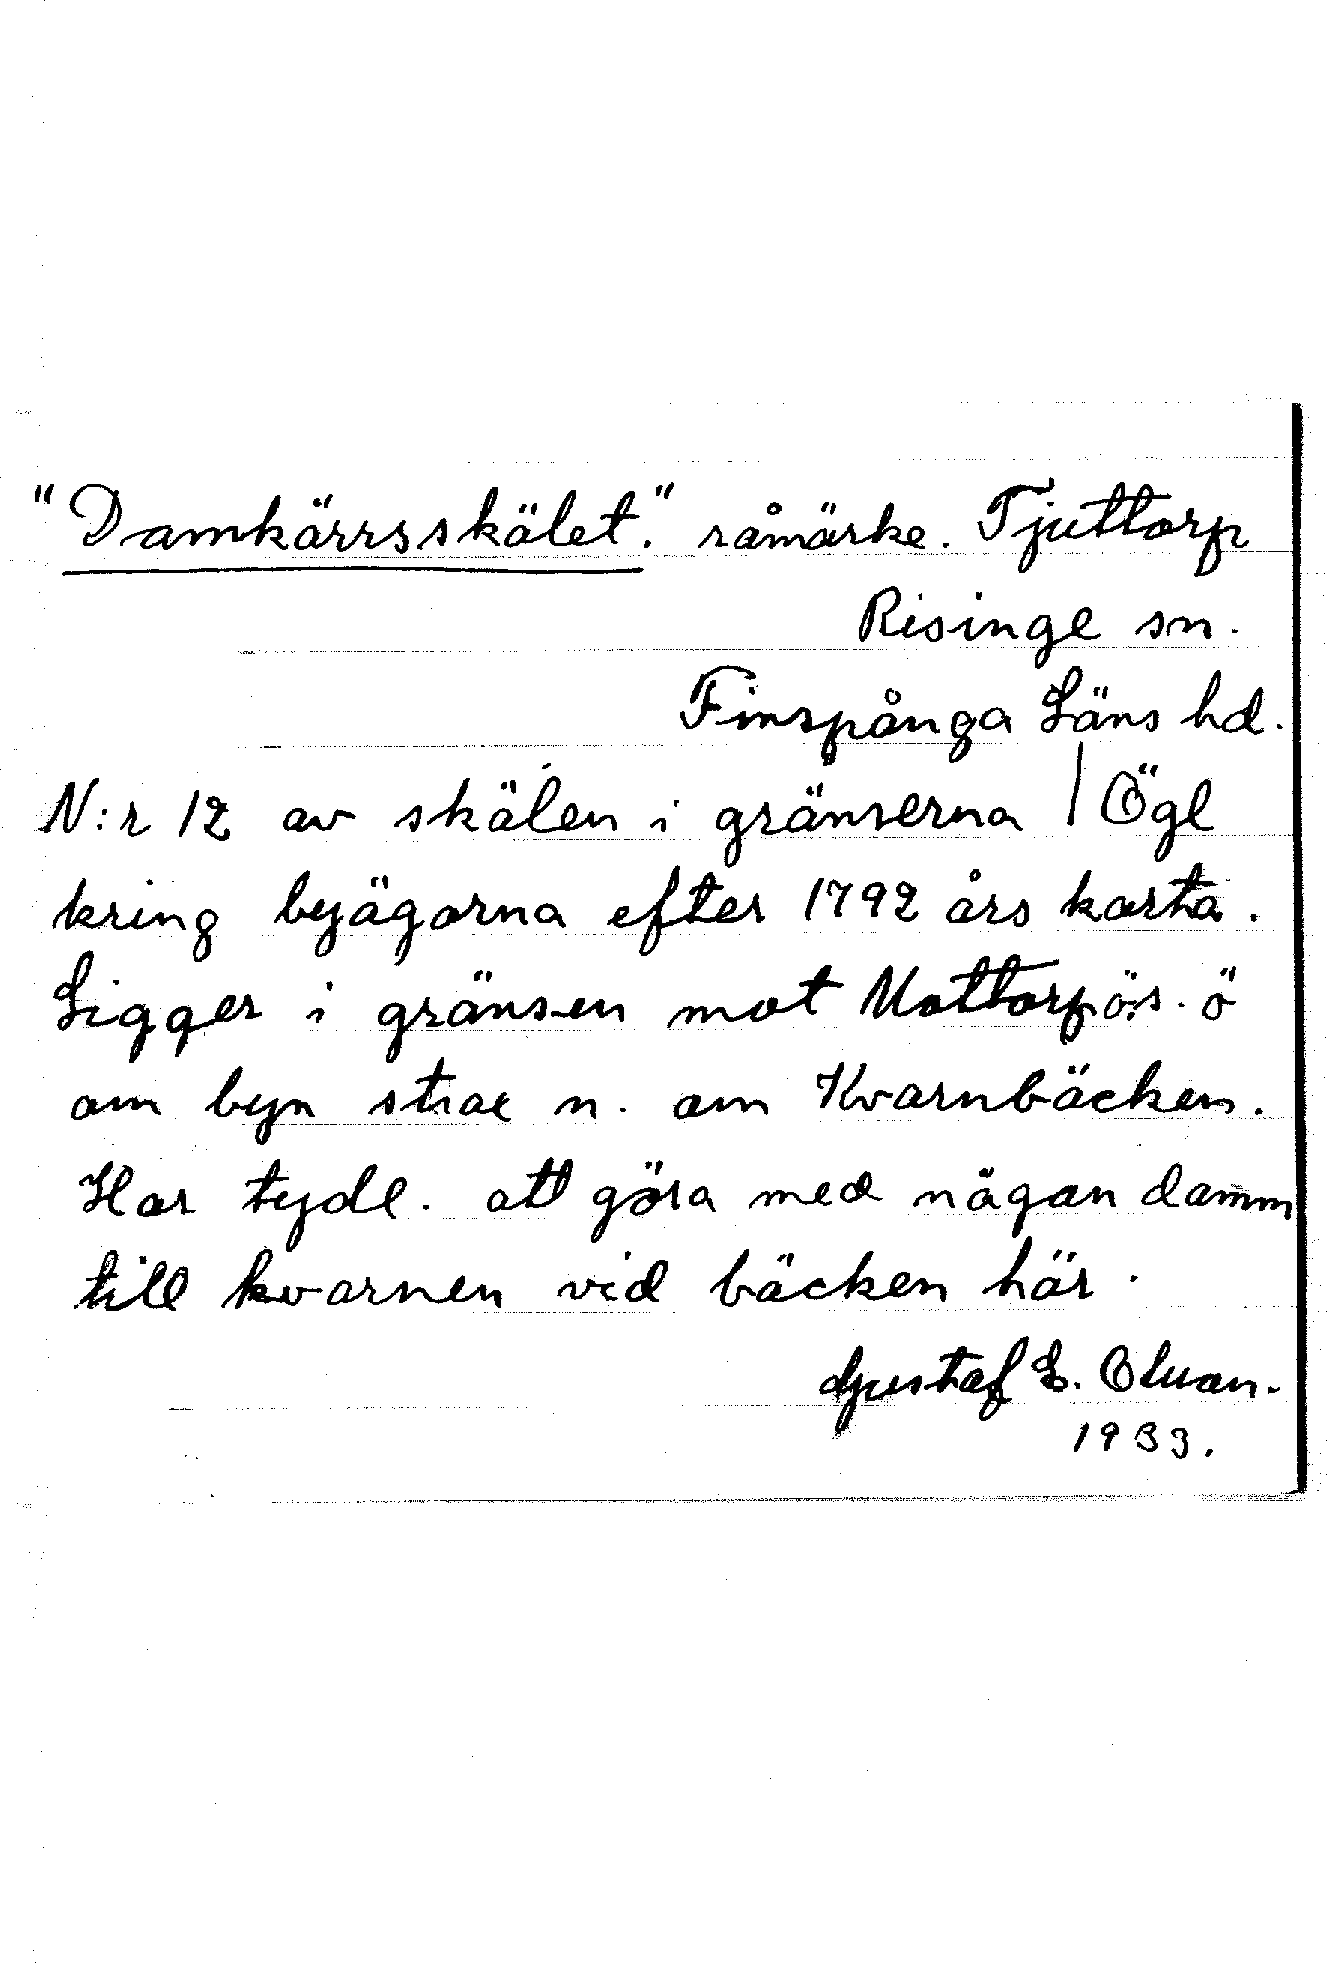 "Damkärrsskälet." råmärke. Tjuttorp
Risinge sn.
Finspånga Läns hd.
N:r 12 av skälen i gränserna / Ögl
kring byägorna efter 1792 års karta.
Ligger i gränsen mot Mottorp ö.s. ö
om byn strax n. om Kvarnbäcken.
Har tydl. att göra med någon damm
till kvarnen vid bäcken här.
Gustaf E. Olsson.
1933.